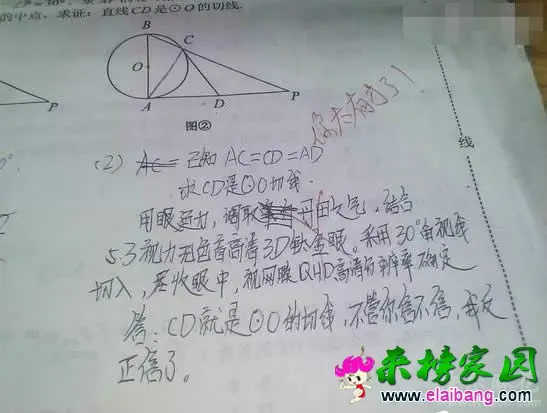 的中点,求证:直线CD是⊙O的切线.
B
C
O
A
D
P
P
图②
你太有才了!
线
(2) AC= 已知 AC=CD=AD
求CD是⊙O切线.
用眼运力,调取 丹田之气,结合
5.3视力无色盲高清3D钛金眼.采用30°角视线
切入,尽收眼中,视网膜QHD高清分辨率确定
答:CD就是⊙O的切线,不管你信不信,我反
正信了。
来榜家园
www.elaibang.com